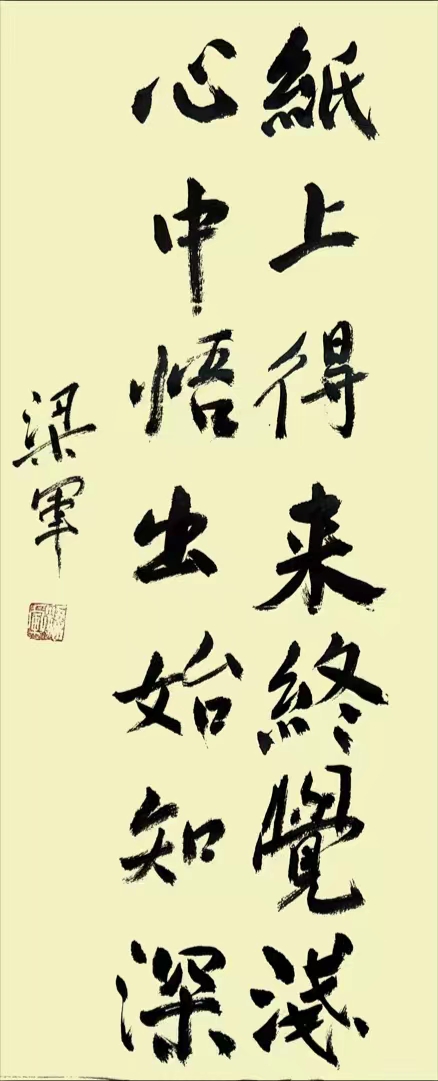 紙上得来終覺淺
心中悟出始知深
梁軍